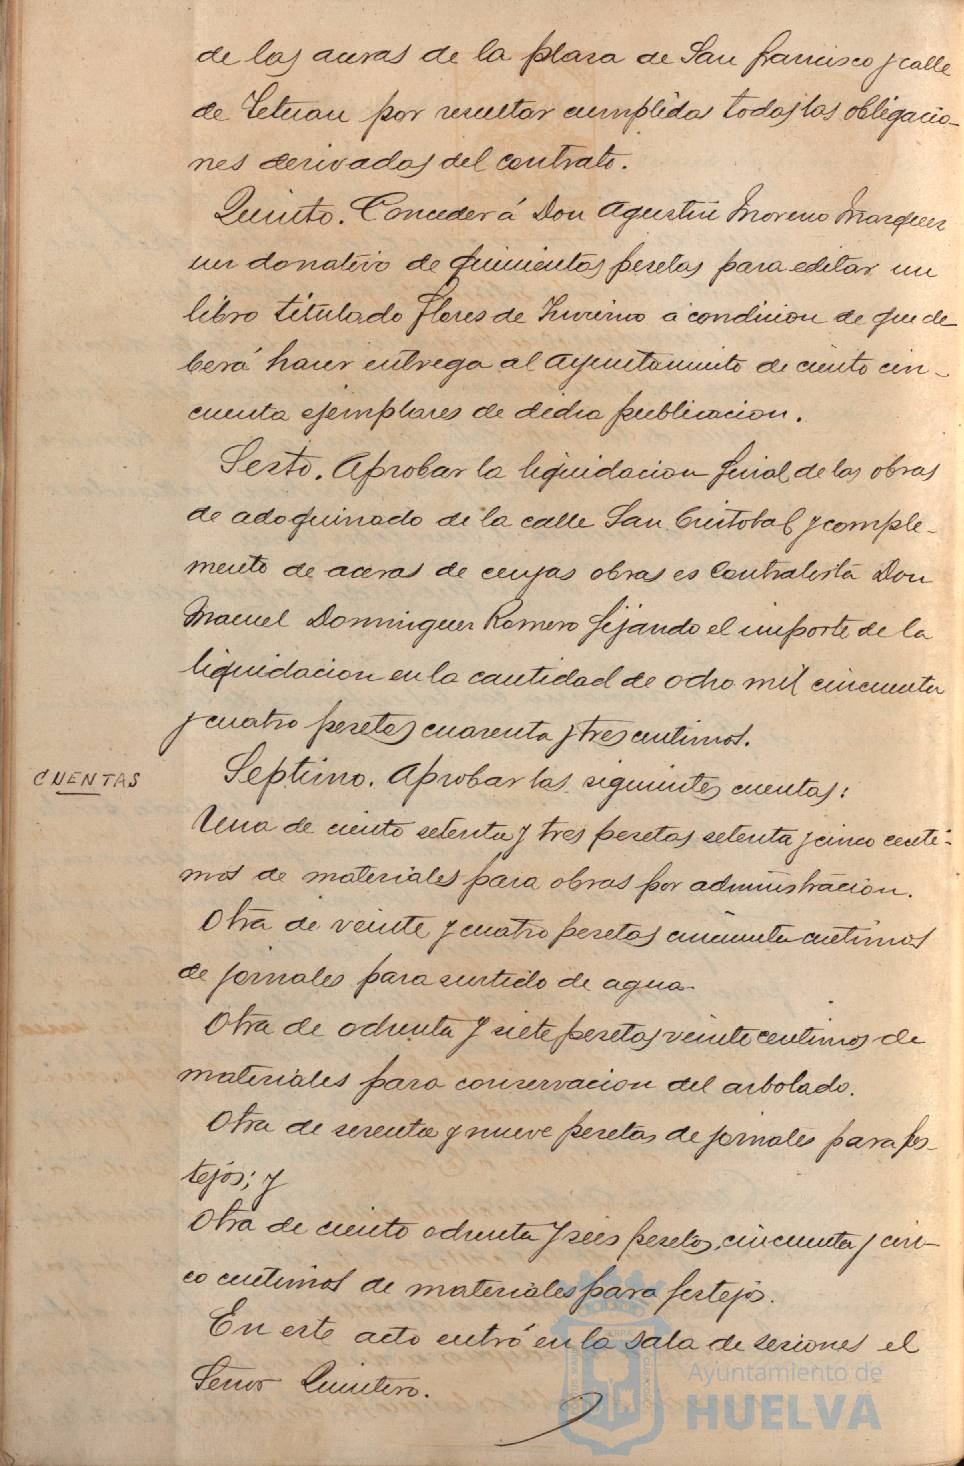 de las aceras de la plaza de San francisco y calle
de Tetuan por resultar cumplidas todas las obligacio-
nes derivadas del contrato.
Quinto. Conceder á Don Agustin Moreno Marquez
un donativo de quinientas pesetas para editar un
libro titulado flores de Invierno a condicion de que de
berá hacer entrega al Ayuntamiento de ciento cin-
cuenta ejemplares de dicha publicacion.
Sexto. Aprobar la liquidacion final de las obras
de adoquinado de la calle San Cristobal y comple-
mento de aceras de cuyas obras es Contratista Don
Manuel Dominguez Romero fijando el importe de la
liquidacion en la cantidad de ocho mil cincuenta
y cuatro pesetas cuarenta y tres centimos.
CUENTAS
Septimo. Aprobar las siguientes cuentas:
Una de ciento setenta y tres pesetas setenta y cinco centi-
mos de materiales para obras por administracion.
Otra de veinte y cuatro pesetas cincuenta centimos
de jornales para surtido de agua.
Otra de ochenta y siete pesetas veinte centimos de
materiales para conservacion del arbolado.
Otra de sesenta y nueve pesetas de jornales para fes-
tejos; y
Otra de ciento ochenta y seis pesetas, cincuenta y cin-
co centimos de materiales para festejos.
En este acto entró en la sala de sesiones el
Señor Quintero.
Ayuntamiento de
HUELVA